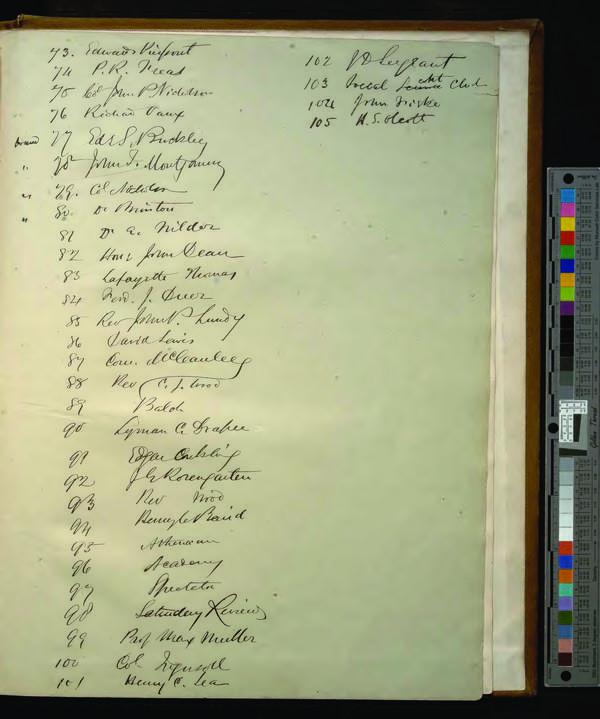 73. Edward Pierpont
74 P. R. Freas
75 Col John P. Nicholson
76 Richard Vaux
77 Ed. S. Buckley
78 John T. Montgomery
" 79. Col Nicholson
" 80. Dr Brinton
81 Dr A. Wilder
82 Hon. John Dean
83 Lafayette Thomas
84 Ferd. J. Dreer
85 Rev John P. Lundy
86 David Lewis
87 Com. McCauley
88 Rev C. J. Wood
89 Balch
90 Lyman C. Draper
91 Edgar Conkling
92 J G Rosengarten
93 Rev Wood
94 Henry C Baird
95 Athenaeum
96 Academy
97 Spectator
98 Saturday Review
99 Prof Max Muller
100 Col Ingersoll
101 Henry C. Lea
102 J D Sergeant
103 Social Science Club
104 John Fiske
105 H. S. Olcott